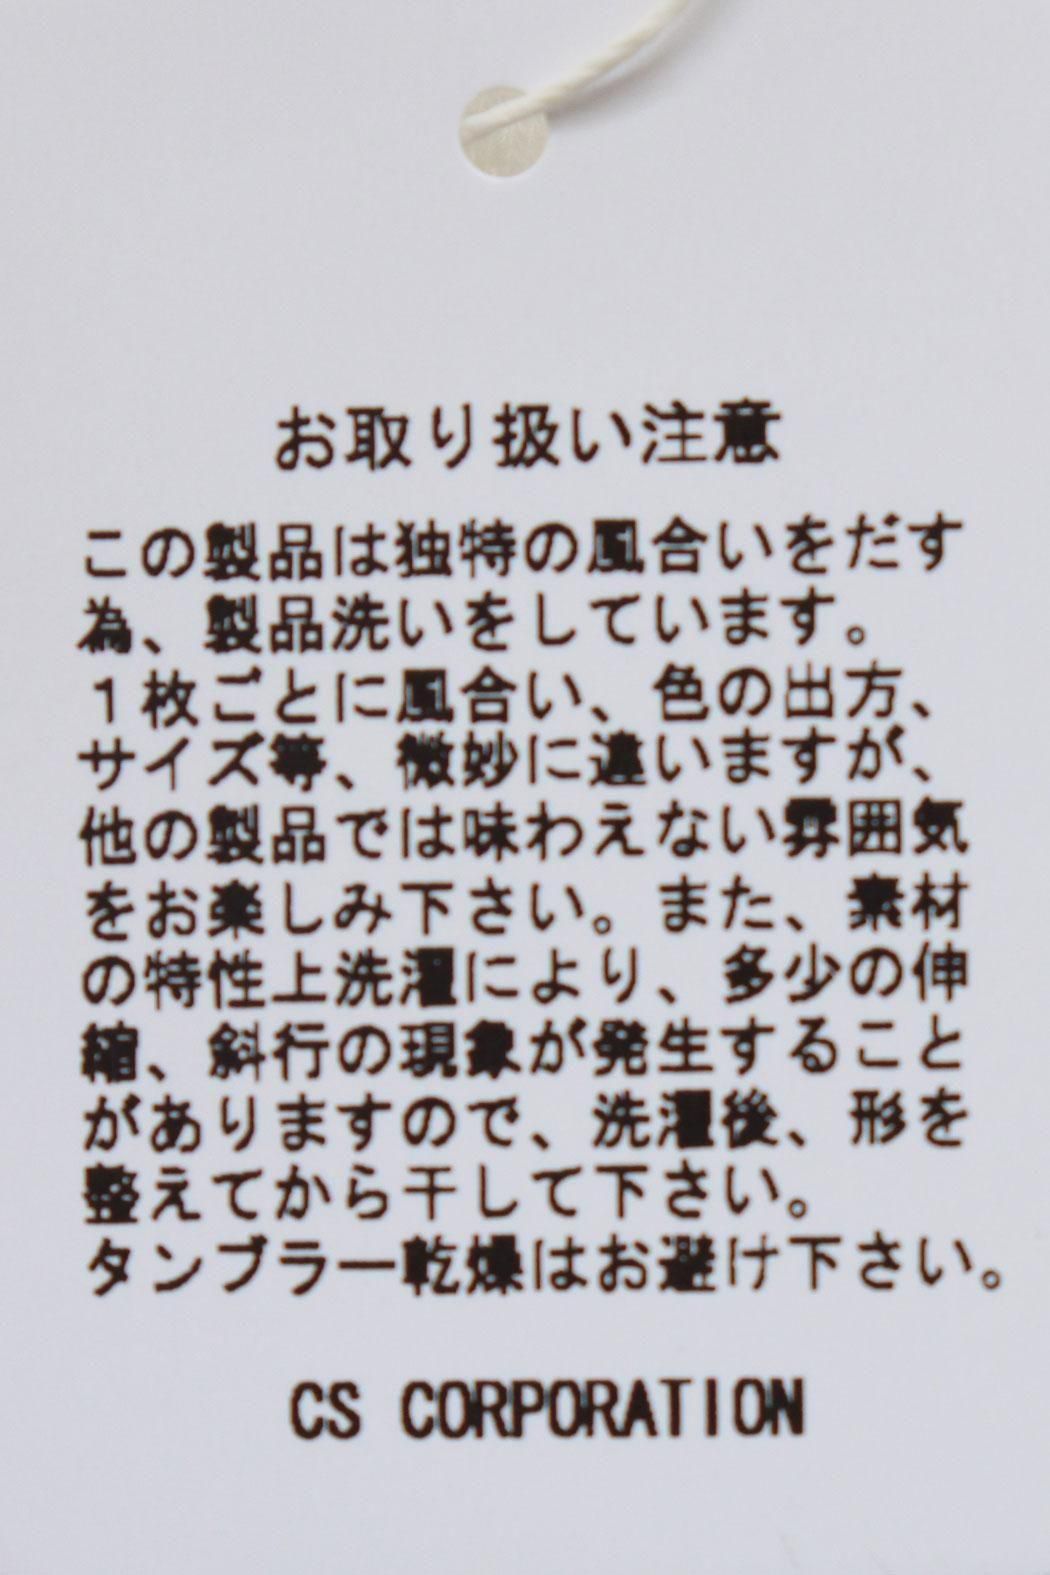 お取り扱い注意
この製品は独特の風合いをだす
為、製品洗いをしています。
１枚ごとに風合い、色の出方、
サイズ等、微妙に違いますが、
他の製品では味わえない雰囲気
をお楽しみ下さい。また、素材
の特性上洗濯により、多少の伸
縮、斜行の現象が発生すること
がありますので、洗濯後、形を
整えてから干して下さい。
タンブラー乾燥はお避け下さい。
CS CORPORATION